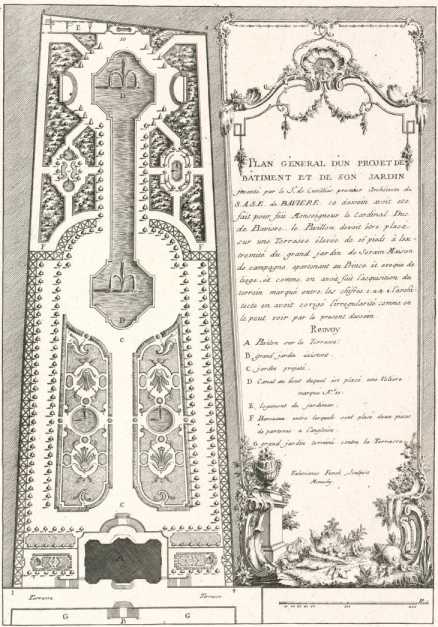 PLAN GENERAL DUN PROJET DE
BATIMENT ET DE SON JARDIN
inventé par le Sr. de Cuvilliés premier Architecte de
S.A.S.E. de BAVIERE. ce dessein avoit été
fait pour feu Monseigneur le Cardinal Duc
de Baviere. le Pavillon devoit être placé
sur une Terrasse élevée de pieds à l'ex-
tremité du grand jardin de Serain Maison
de campagne apartenant au Prince et évêque de
liege. et comme on avoit fait l'aquisition du
terrain marqué entre les chiffres l'archi-
tecte en avoit corigé l'irregularité comme on
le peut voir par le present dessein
Renvoy
A Pavillon sur la Terrasse:
B grand jardin existent.
C jardin projeté.
D Canal au bout duquel est placé une Voliere
marqué Nº. 10.
E logement du jardinier.
F Berceaux entre lesquels sont placé deux pieces
de parterre à l'angloise
G grand jardin terminé contre la Terrasse
Valerianus Funck Sculpsit
Monachy.
E
10
D
F F
D
C
C
A
1
Terrasse Terrasse
G B G